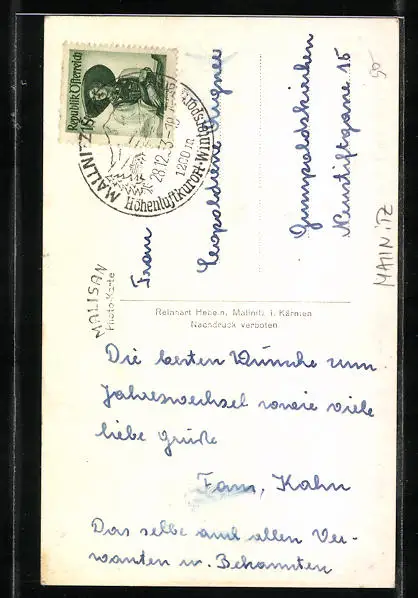 Republik Österreich
MALLNITZ
28.12.53
1200 m
Höhenluftkurort-Wintersport
Frau
Leopoldine Wagner
Gumpoldskirchen
Neustiftgasse 15
50-
MALLNITZ
MALISAN
Photo-Karte
Reinhart Hedein, Mallnitz i. Kärnten
Nachdruck verboten
Die besten Wünsche zum
Jahreswechsel sowie viele
liebe Grüße
Fam. Kahn
Das selbe auch allen Ver-
wanten u. Bekannten